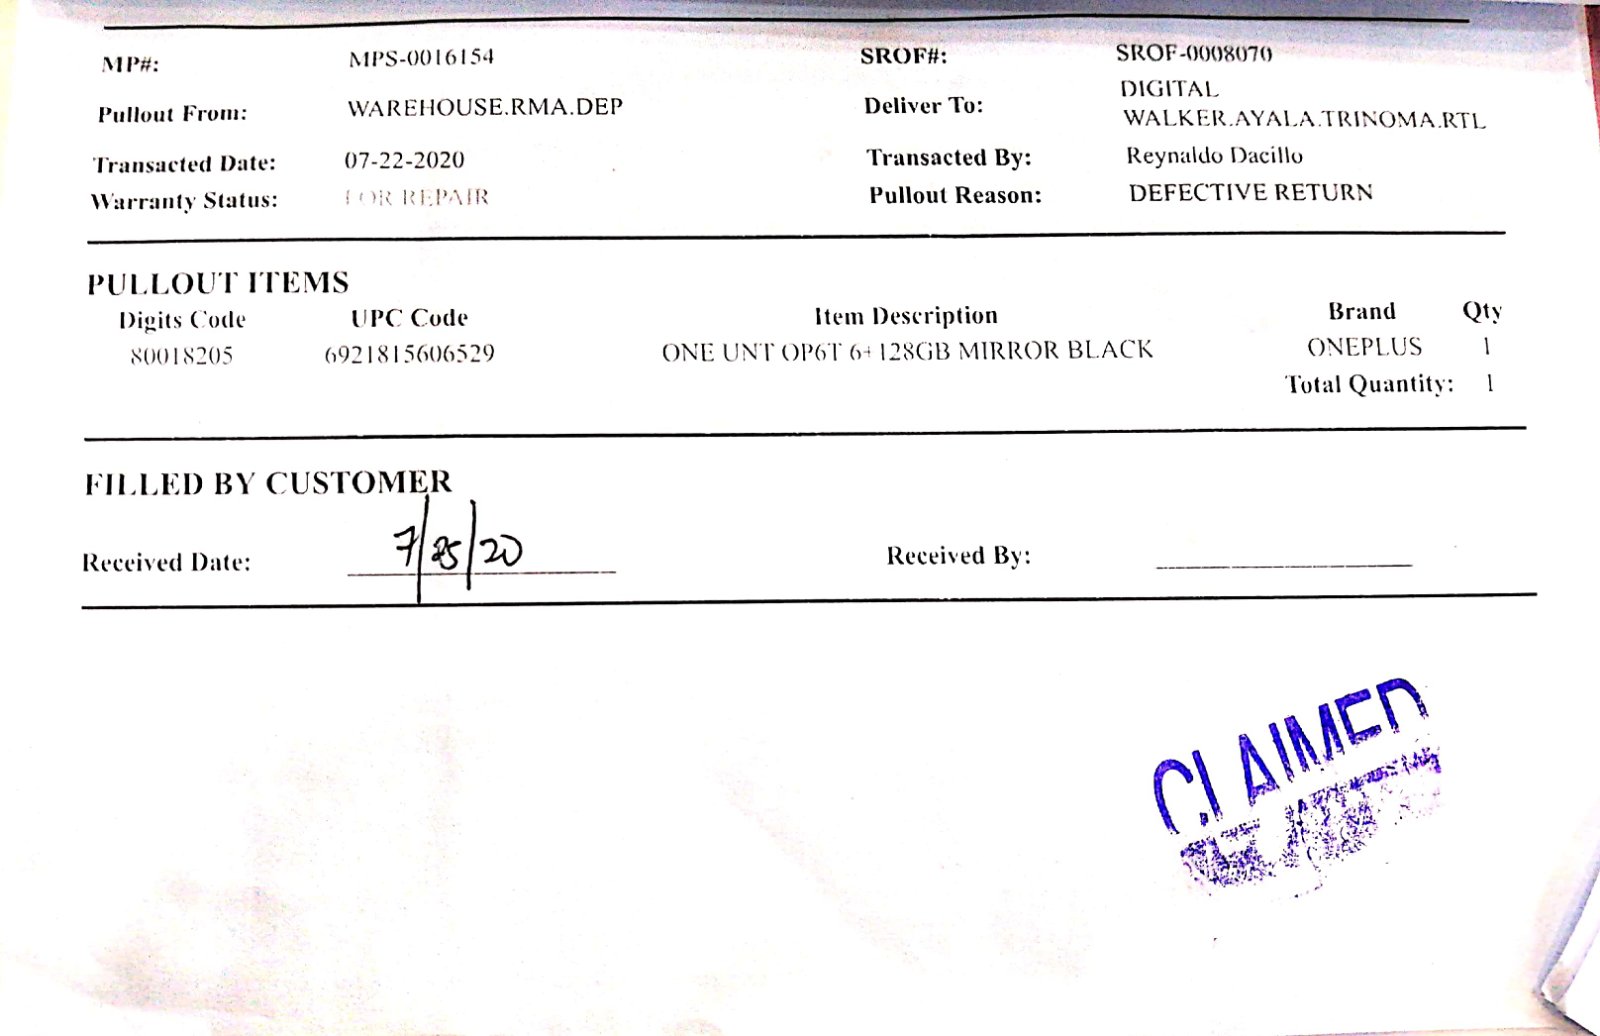 MP#: MPS-0016154 SROF#: SROF-0008070
Pullout From: WAREHOUSE.RMA.DEP Deliver To: DIGITAL
WALKER.AYALA.TRINOMA.RTL
Transacted Date: 07-22-2020 Transacted By: Reynaldo Dacillo
Warranty Status: FOR REPAIR Pullout Reason: DEFECTIVE RETURN
PULLOUT ITEMS
Digits Code UPC Code Item Description Brand Qty
80018205 6921815606529 ONE UNT OP6T 6+128GB MIRROR BLACK ONEPLUS 1
Total Quantity: 1
FILLED BY CUSTOMER
Received Date: 7/25/20 Received By:
CLAIMED